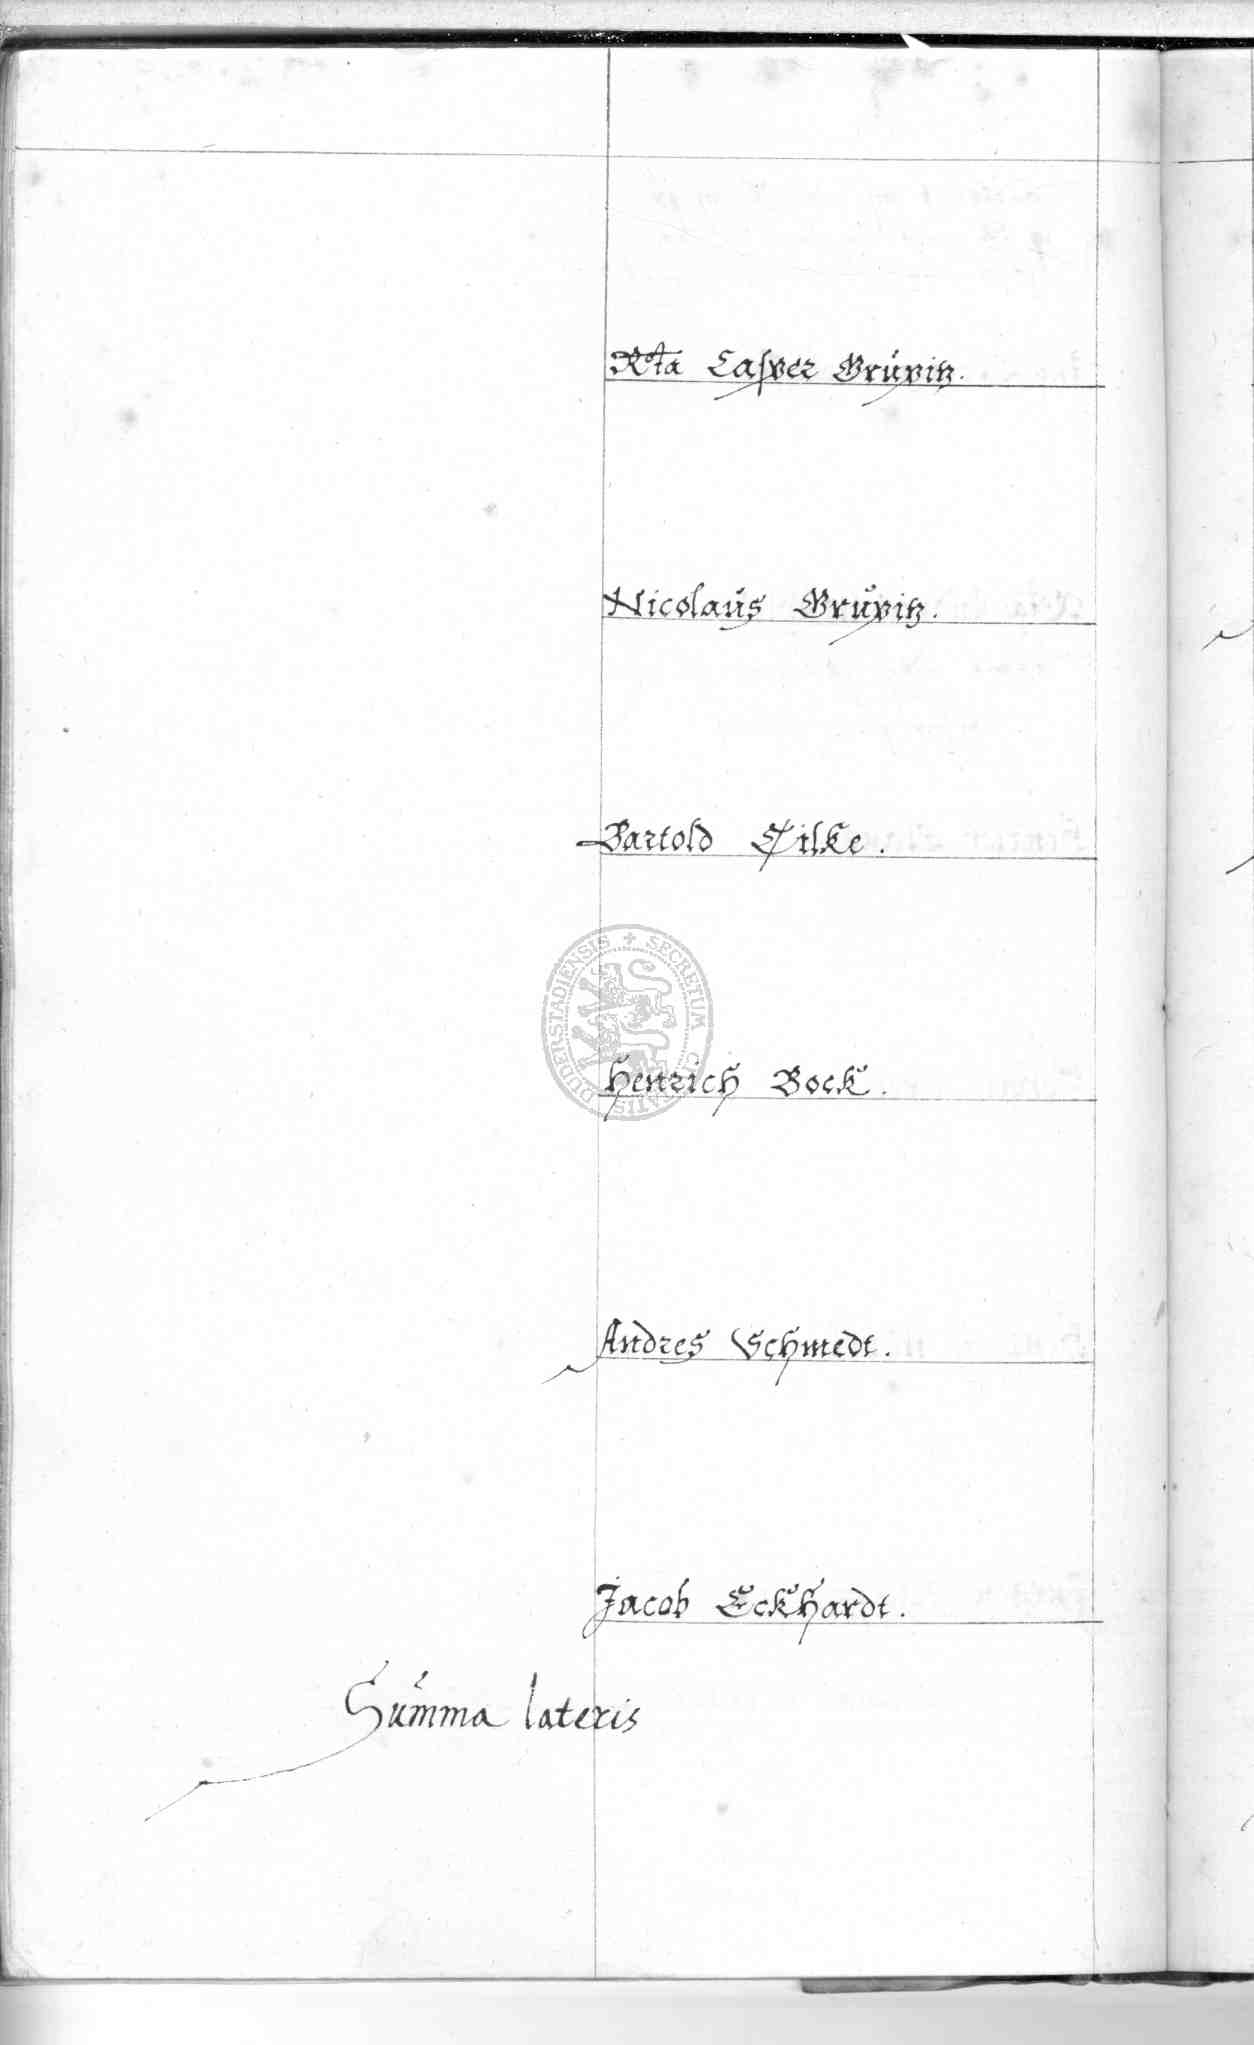 Rta Casper Grüpitz.
Nicolaus Grüpitz.
Bartold Cilke.
SECRETUM CIVITATIS DUDERSTADIENSIS
Henrich Bock.
Andres Schmedt.
Jacob Eckhardt.
Summa lateris